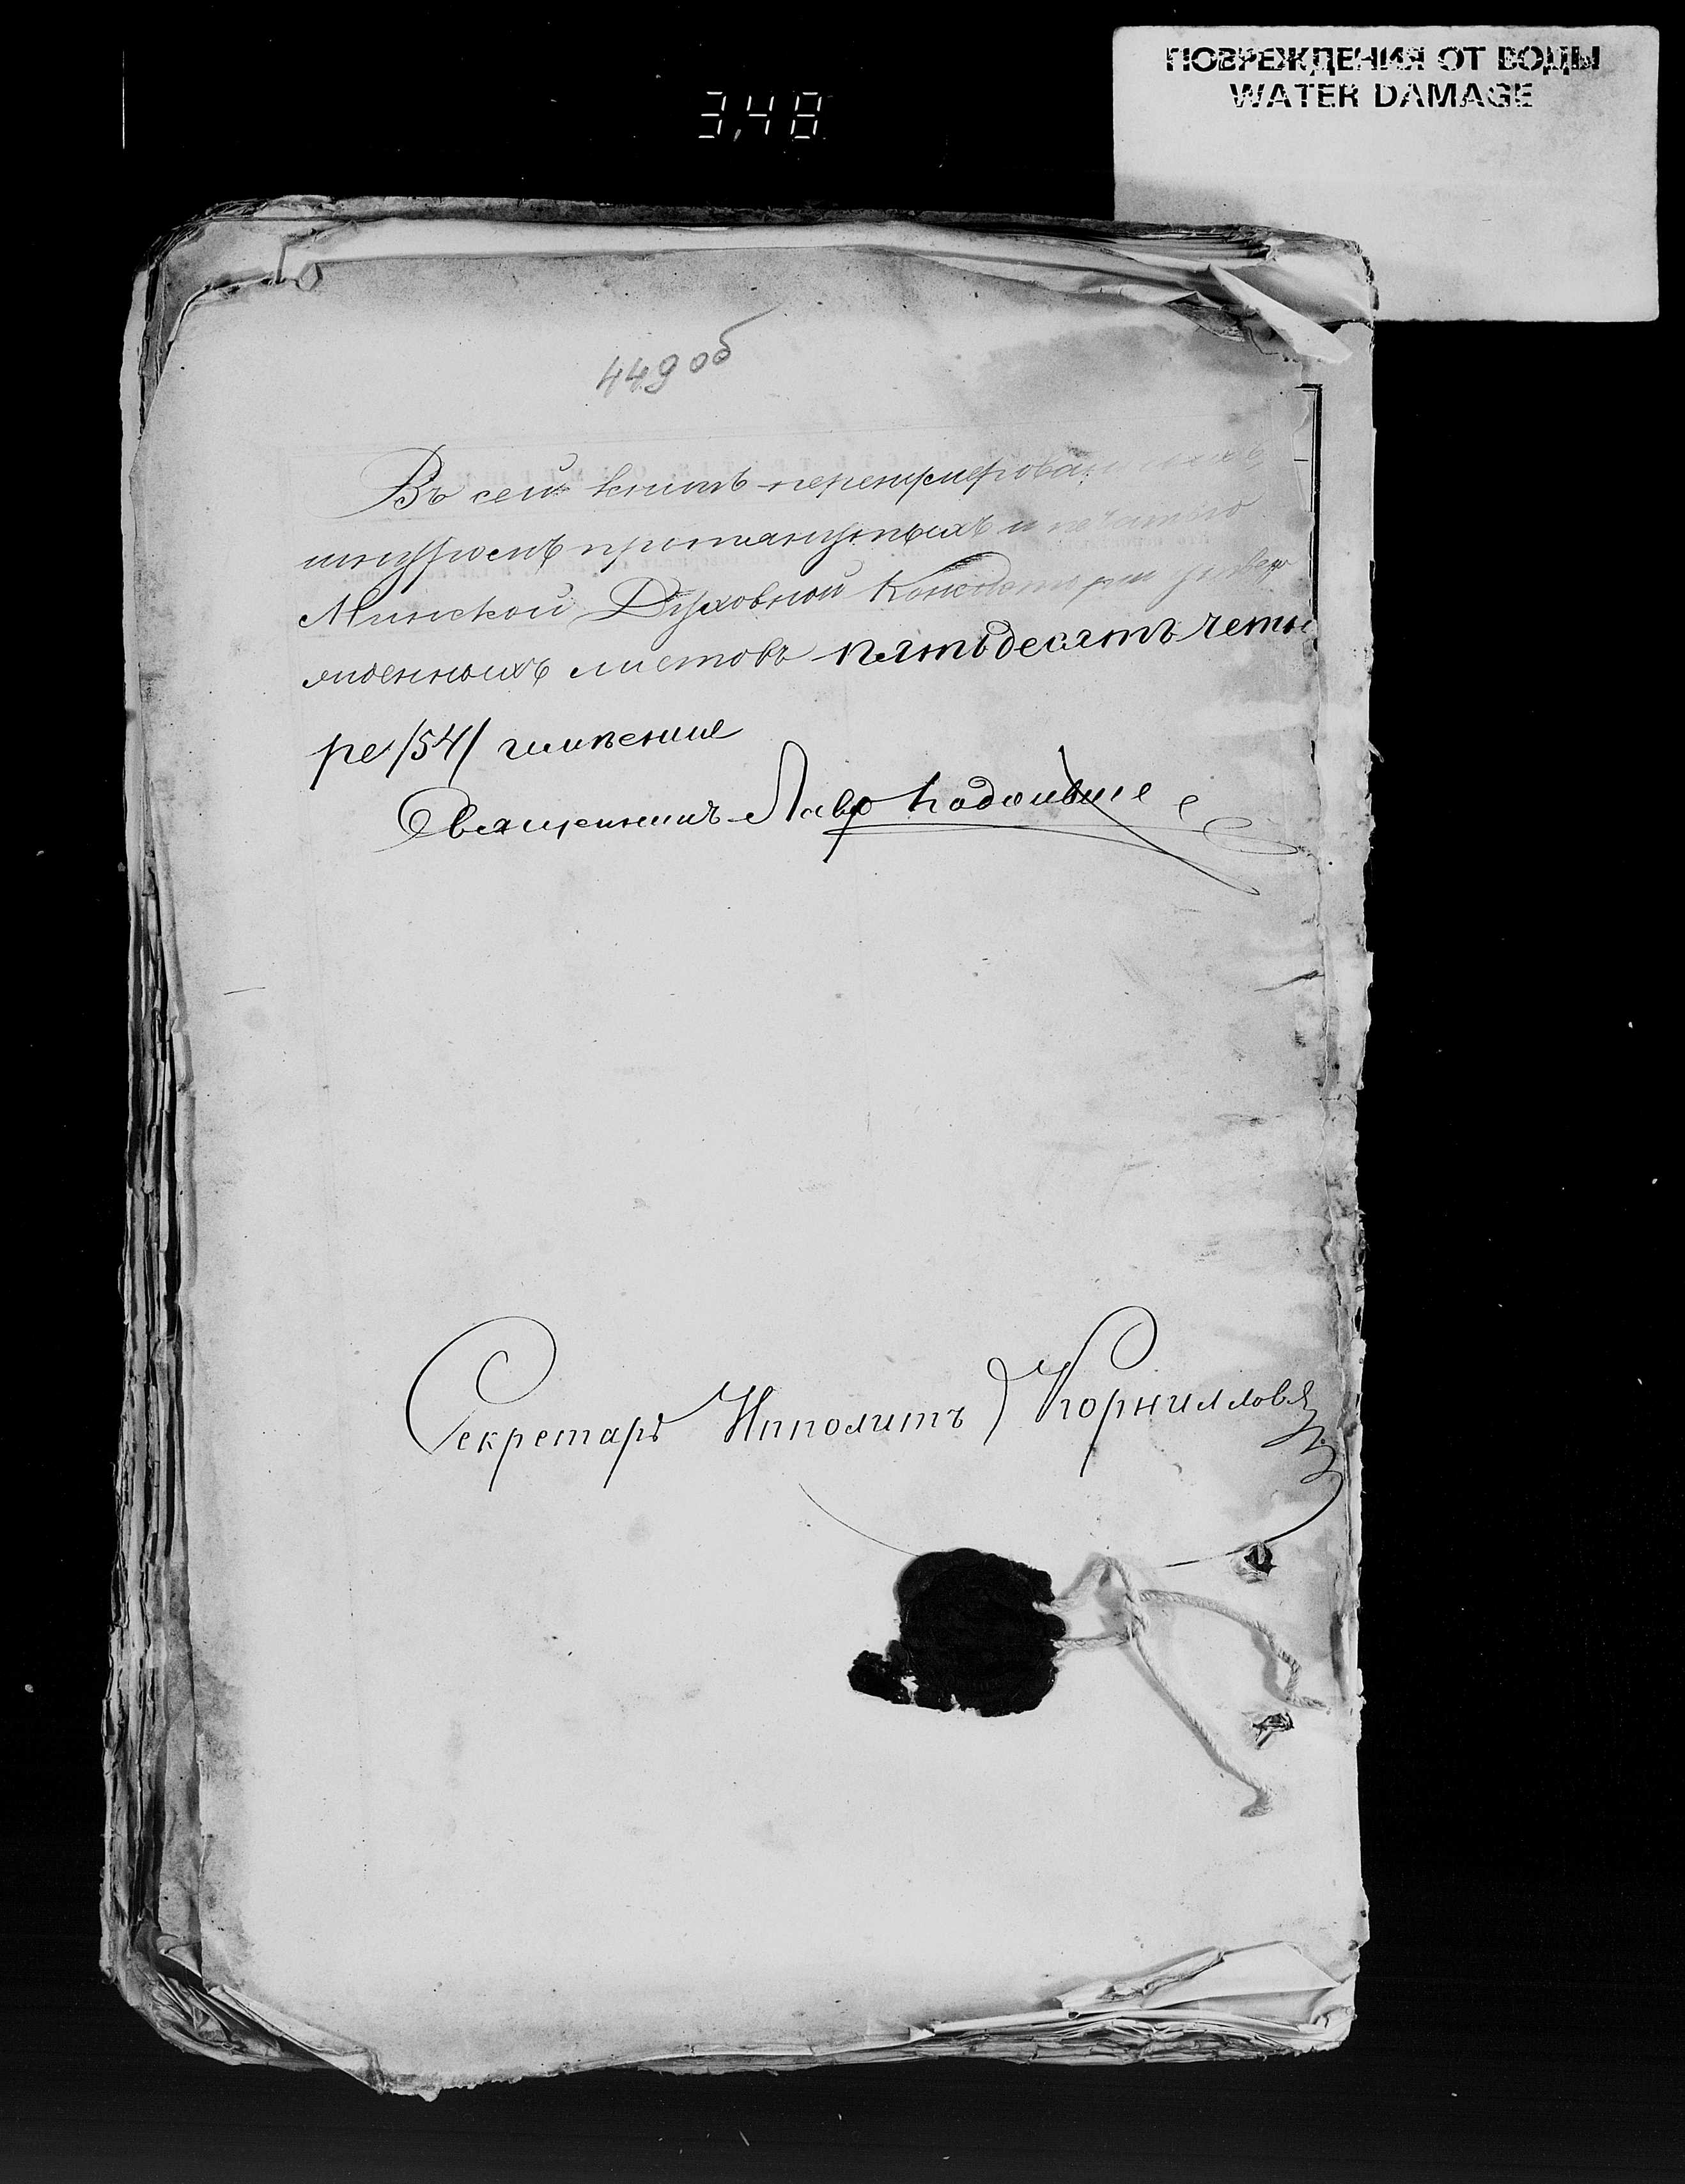 ПОВРЕЖДЕНИЯ ОТ ВОДЫ
WATER DAMAGE
3,48
449 об
Въ сей книгѣ перенумерованныхъ,
шнуромъ протянутыхъ и печатью
Минской Духовной Консисторіи утвер
жденныхъ листовъ пятьдесятъ четы
ре /54/
Священникъ Лавр
Секретарь Ипполитъ Корнилловъ